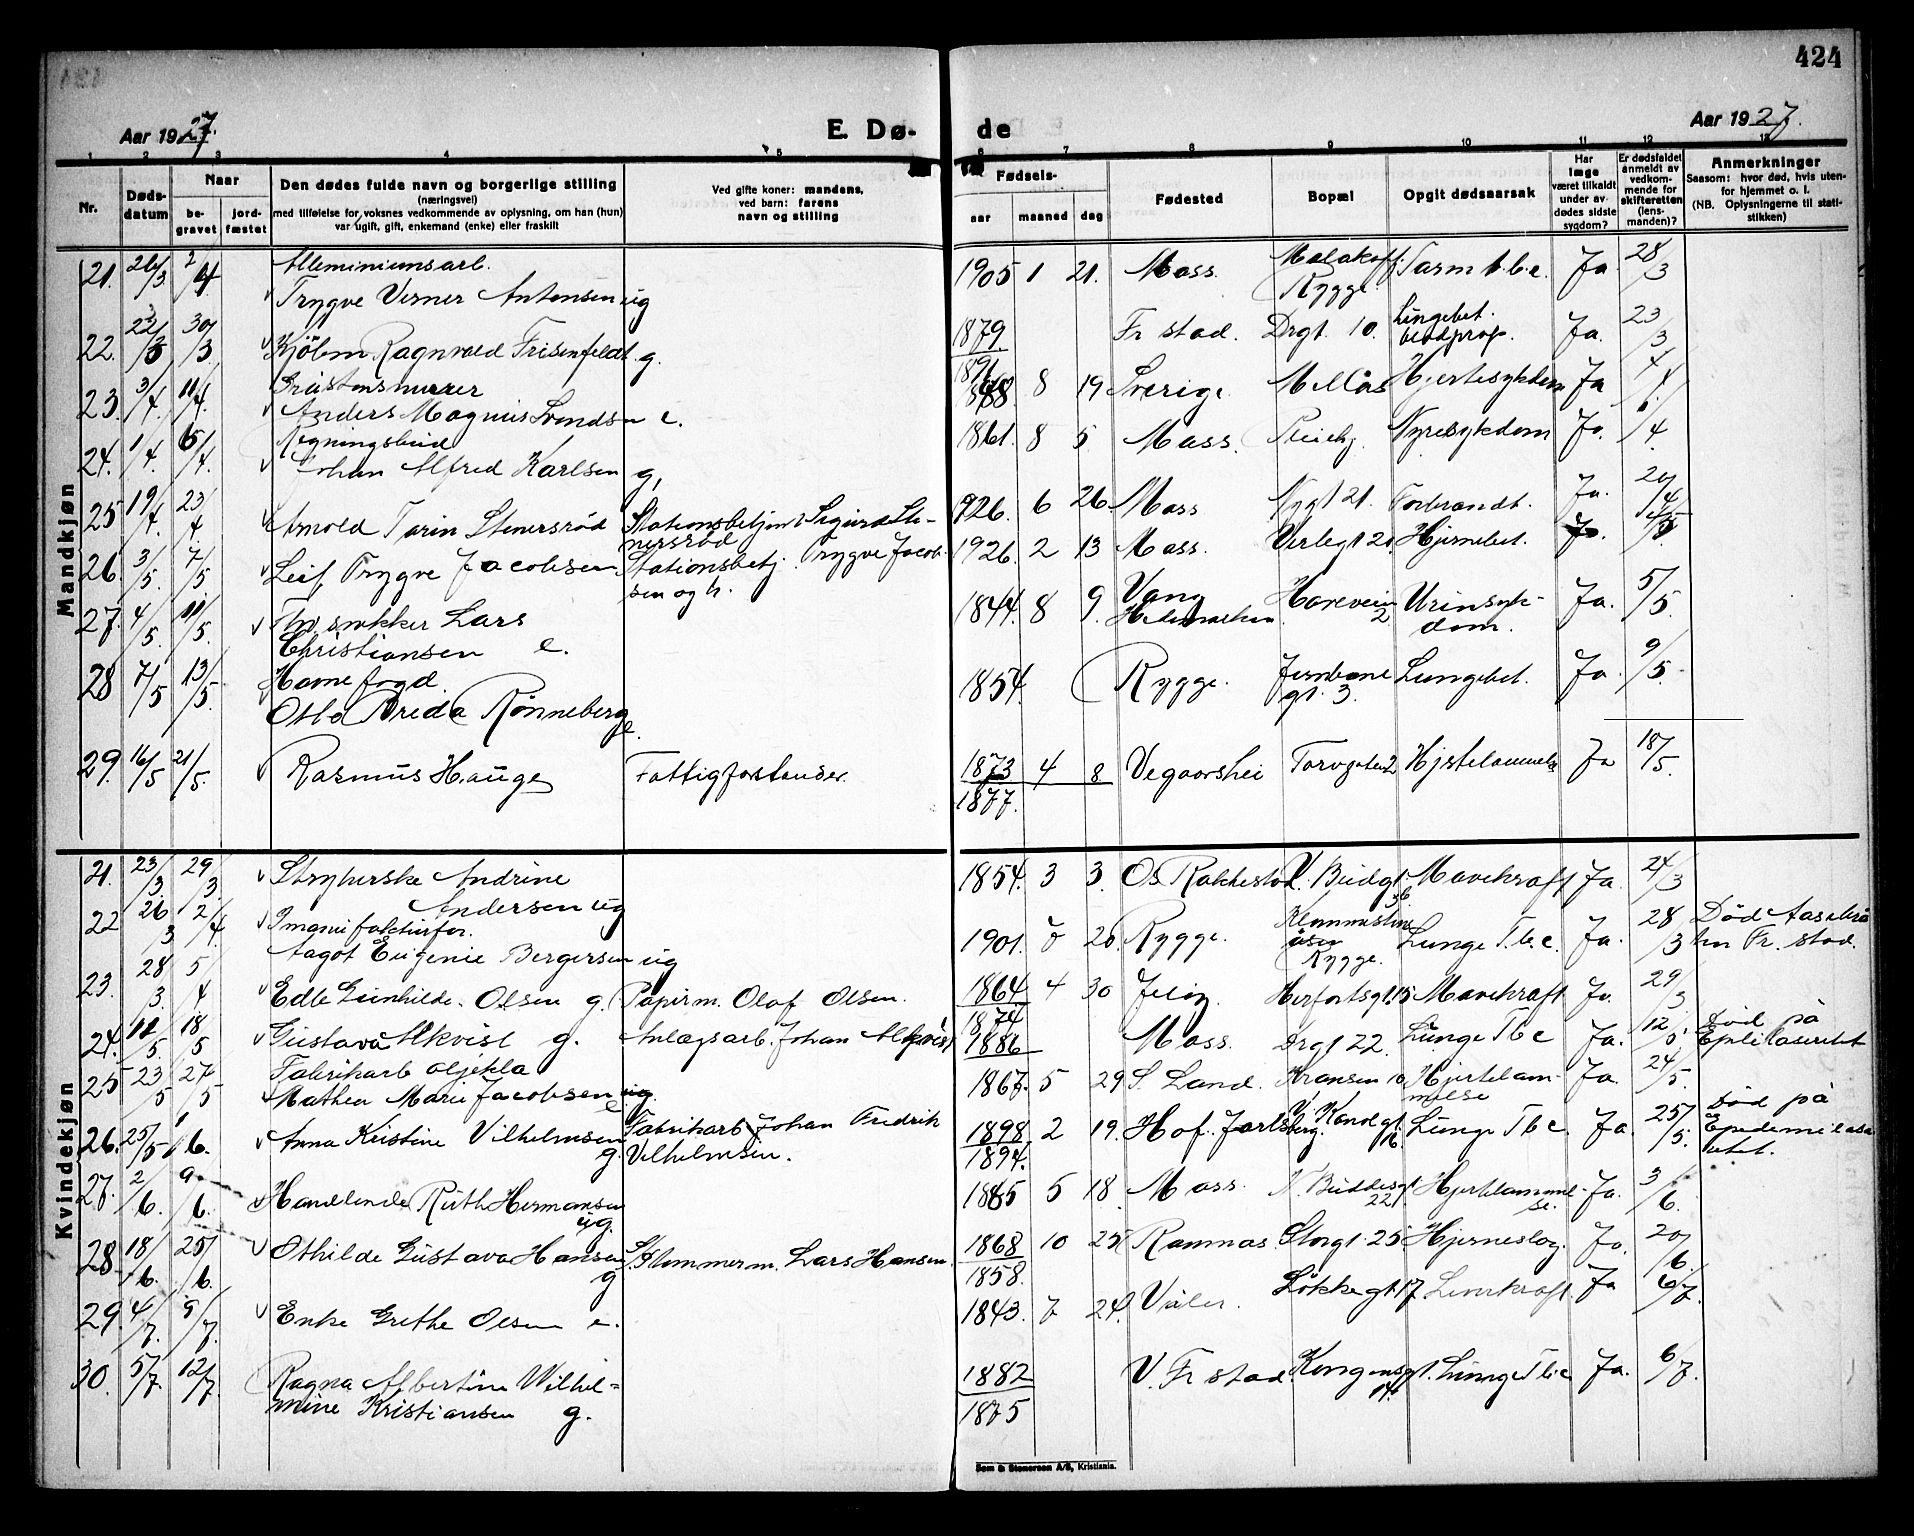 424
Aar 1927.
E. Dø-
de
Aar 1927.
1 2 3 4 5 6 7 8 9 10 11 12 13
Nr.
Døds-
datum
Naar
be-
gravet
jord-
fæstet
Den dødes fulde navn og borgerlige stilling
(næringsvei)
med tilføielse for voksnes vedkommende av oplysning, om han (hun)
var ugift, gift, enkemand (enke) eller fraskilt
Ved gifte koner: mandens,
ved barn: farens
navn og stilling
Fødsels-
aar maaned dag
Fødested
Bopæl
Opgit dødsaarsak
Har
læge
været tilkaldt
under av-
dødes sidste
sygdom?
Er dødsfaldet
anmeldt av
vedkom-
mende for
skifteretten
(lens-
manden)?
Anmerkninger
Saasom: hvor død, hvis uten-
for hjemmet o. l.
(NB. Oplysningerne til stati-
stikken)
Mandkjøn
21. 26/3 2/4 Alleminiumsarb. 1905 1 21. Moss. Malakoff. Tarm t.b.c. Ja. 28/3
Trygve Verner Antonsen ug Rygge.
22. 22/3 30/3 Kjöbm Ragnvald Frisenfeldt. g. 1879 Fr stad. Drgt. 10. Lungebet. Ja. 23/3
1891 blodprop.
23. 3/4 11/4. Anders Magnus Svendsen e. 8 19 Sverige. Mellös Hjertesykdom Ja 4/4
24. 1/4. 5/4. Regningsbud 1861. 8 5 Moss. Nyresykdom Ja. /4
Johan Alfred Karlsen g,
25 19/4. 23/4. Arnold Torin Stenersröd Stationsbetjent Sigurd Ste- 926. 6 26. Moss Nygt 21. Forbrandt. Ja. 20/4
nersröd
26. 3/5. 7/5 Leif Trygve Jacobsen. Stationsbetj. Trygve Jacob- 1926. 2 13 Moss. Verlegt 21 Hjernebet. Ja. /5
sen og h.
27. 4/5 11/5. Lars 1844. 8 9. Vang Haveveien Urinsyk- Ja. 5/5.
Christiansen e. Hedemarken 2 dom.
28 7/5 13/5. Havnefogd. 1854. Rygge. Jernbane Lungebet. Ja. 9/5.
Otto Breda Rönneberg e. gt. 3.
29. 16/5 21/5. Rasmus Hauge Fattigforstander. 1873 4 8 Vegaarshei Torvgaten 2 Hjertelammelse Ja 18/5.
1877.
Kvindekjøn
21. 23/3 29/3. Strykerske Andrine 1854. 3 3. Os Rakkestad. V. Budgt. Mavekraft Ja. 24/3
Andersen ug 36
22 26/3 2/4. I manufakturfor. 1901. 7 20. Rygge. Lunge T.b.c. Ja. 28/3
Aagot Eugenie Bergersen ug Rygge. Fr. stad.
23. 28/3. 5/4 Edle Gunhilde. Olsen g. Papirm. Olaf Olsen. 1864 4 30 Jelöy. Herfortsgt. 15 Mavekraft Ja. 29/3
1874
24. 11/5. 18/5 Gustava Alkvist g. Anlægsarb. Johan Alkvist 1886 Moss. Drgt 22. Lunge Tbc Ja. 12/5. Död på
Epd lasarettet
25 23/5 27/5 Fabrikarb oljekla 1867. 5 29 S. Land. Kransen 10 Hjertelam- Ja. 24/5.
Mathea Marie Jacobsen ug. melse
26. 25/5 1/6. Anna Kristine Vilhelmsen g. Fabrikarb. Johan Fredrik 1898 2 19. Hof. Jarlsberg. V. Kanalgt. 16. Lunge Tbc. Ja. 25/5. Död på
Vilhelmsen. 1894. Epedemilasa
retet.
27. 2/6. 9/6. Handlende Ruth Hermansen ug. 1885 5 18. Moss. N. Buddesgt. 22 Hjertelammel- Ja. 3/6.
se.
28 18/6. 25/6. Othilde Gustava Hansen g Stemmerm. Lars Hansen. 1868 10 25 Ramnas. Storgt. 25 Hjerneslag. Ja. 20/6.
1858.
29. 4/7. 9/7. Enke Grethe Olsen e. 1843. 7 24. Våler. Lökkegt. 17. Leverkraft. Ja 6/7.
30. 5/7. 12/7. Ragna Albertine Wilhel- 1882 V. Fr stad. Kongensgt. Lunge Tbc Ja. 6/7.
mine Kristiansen g. 1875 14.
Sem & Stenersen A/S, Kristiania.